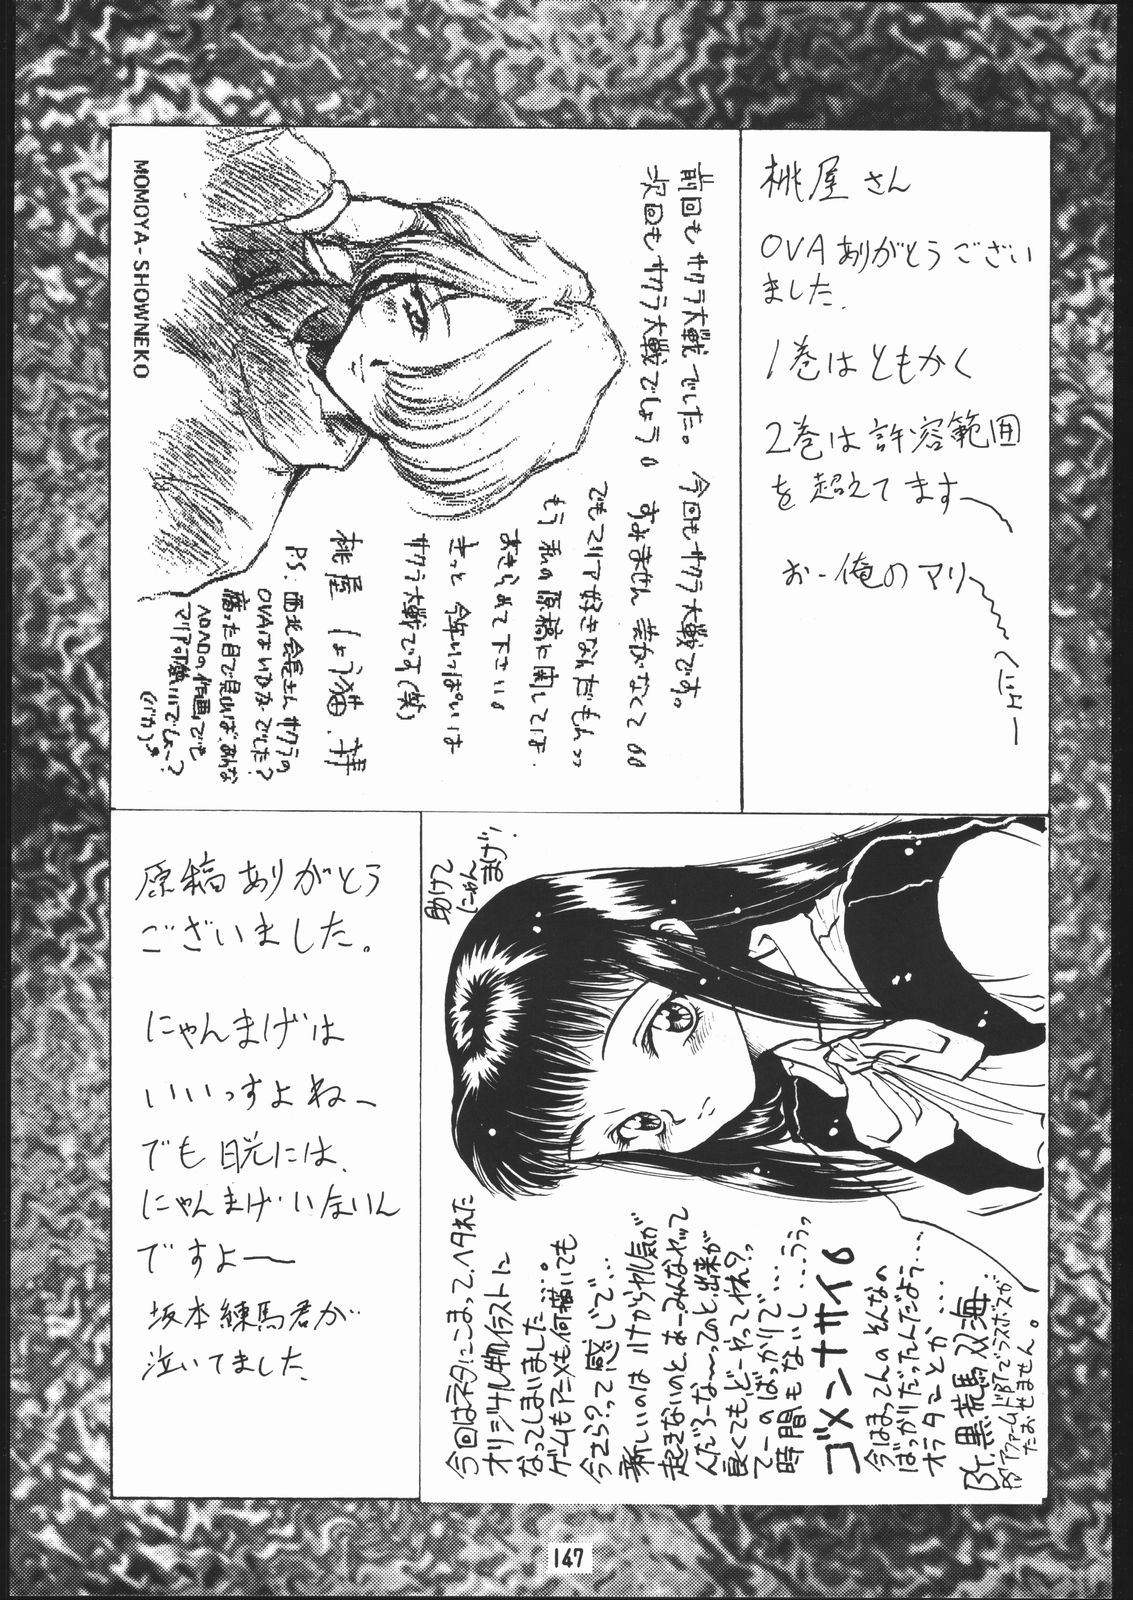 桃屋さん
OVAありがとうござい
ました.
1巻はともかく
2巻は許容範囲
を超えてます〜
おー俺のマリ〜
前回もサクラ大戦でした。今回もサクラ大戦です。
次回もサクラ大戦でしょう。すみません芸がなくて
でもマリア好きなんだもんッ
もう私の原稿に関しては、
あきらめて下さい。
きっと今年いっぱいは
サクラ大戦です(笑)
桃屋 しょう猫.拝
PS. 西北会長さん サクラの
OVAはいかがでした?
腐った目で見れば、みんな
ヘロヘロの作画でも
マリア可愛いでしょ〜?
(バカっ)
MOMOYA-SHOWNEKO
助けて
にゃん
まげ!
今回はネタにこまって、ヘタれた
オリジナル物イラストに
なってしまいました…。
ゲームもアニメも何描いても
今さら?って感じで…
新しいのはハナからヤル気が
起きないのと、あーみんなヤッて
んだろーな〜ってのと、出来が
良くても、どーやってやれ?ッ
てーのばっかりで…
時間もないし…ううッ
ゴメンナサイ。
今はまってんのそんなの
ばっかりだったんだよう……
オラタンとか…
BY.黒荒馬双海
PS アファームドBTでラスボスが
たおせません。
原稿ありがとう
ございました。
にゃんまげは
いいっすよねー
でも 目黒には、
にゃんまげいないん
ですよ〜
坂本練馬君が
泣いてました
147